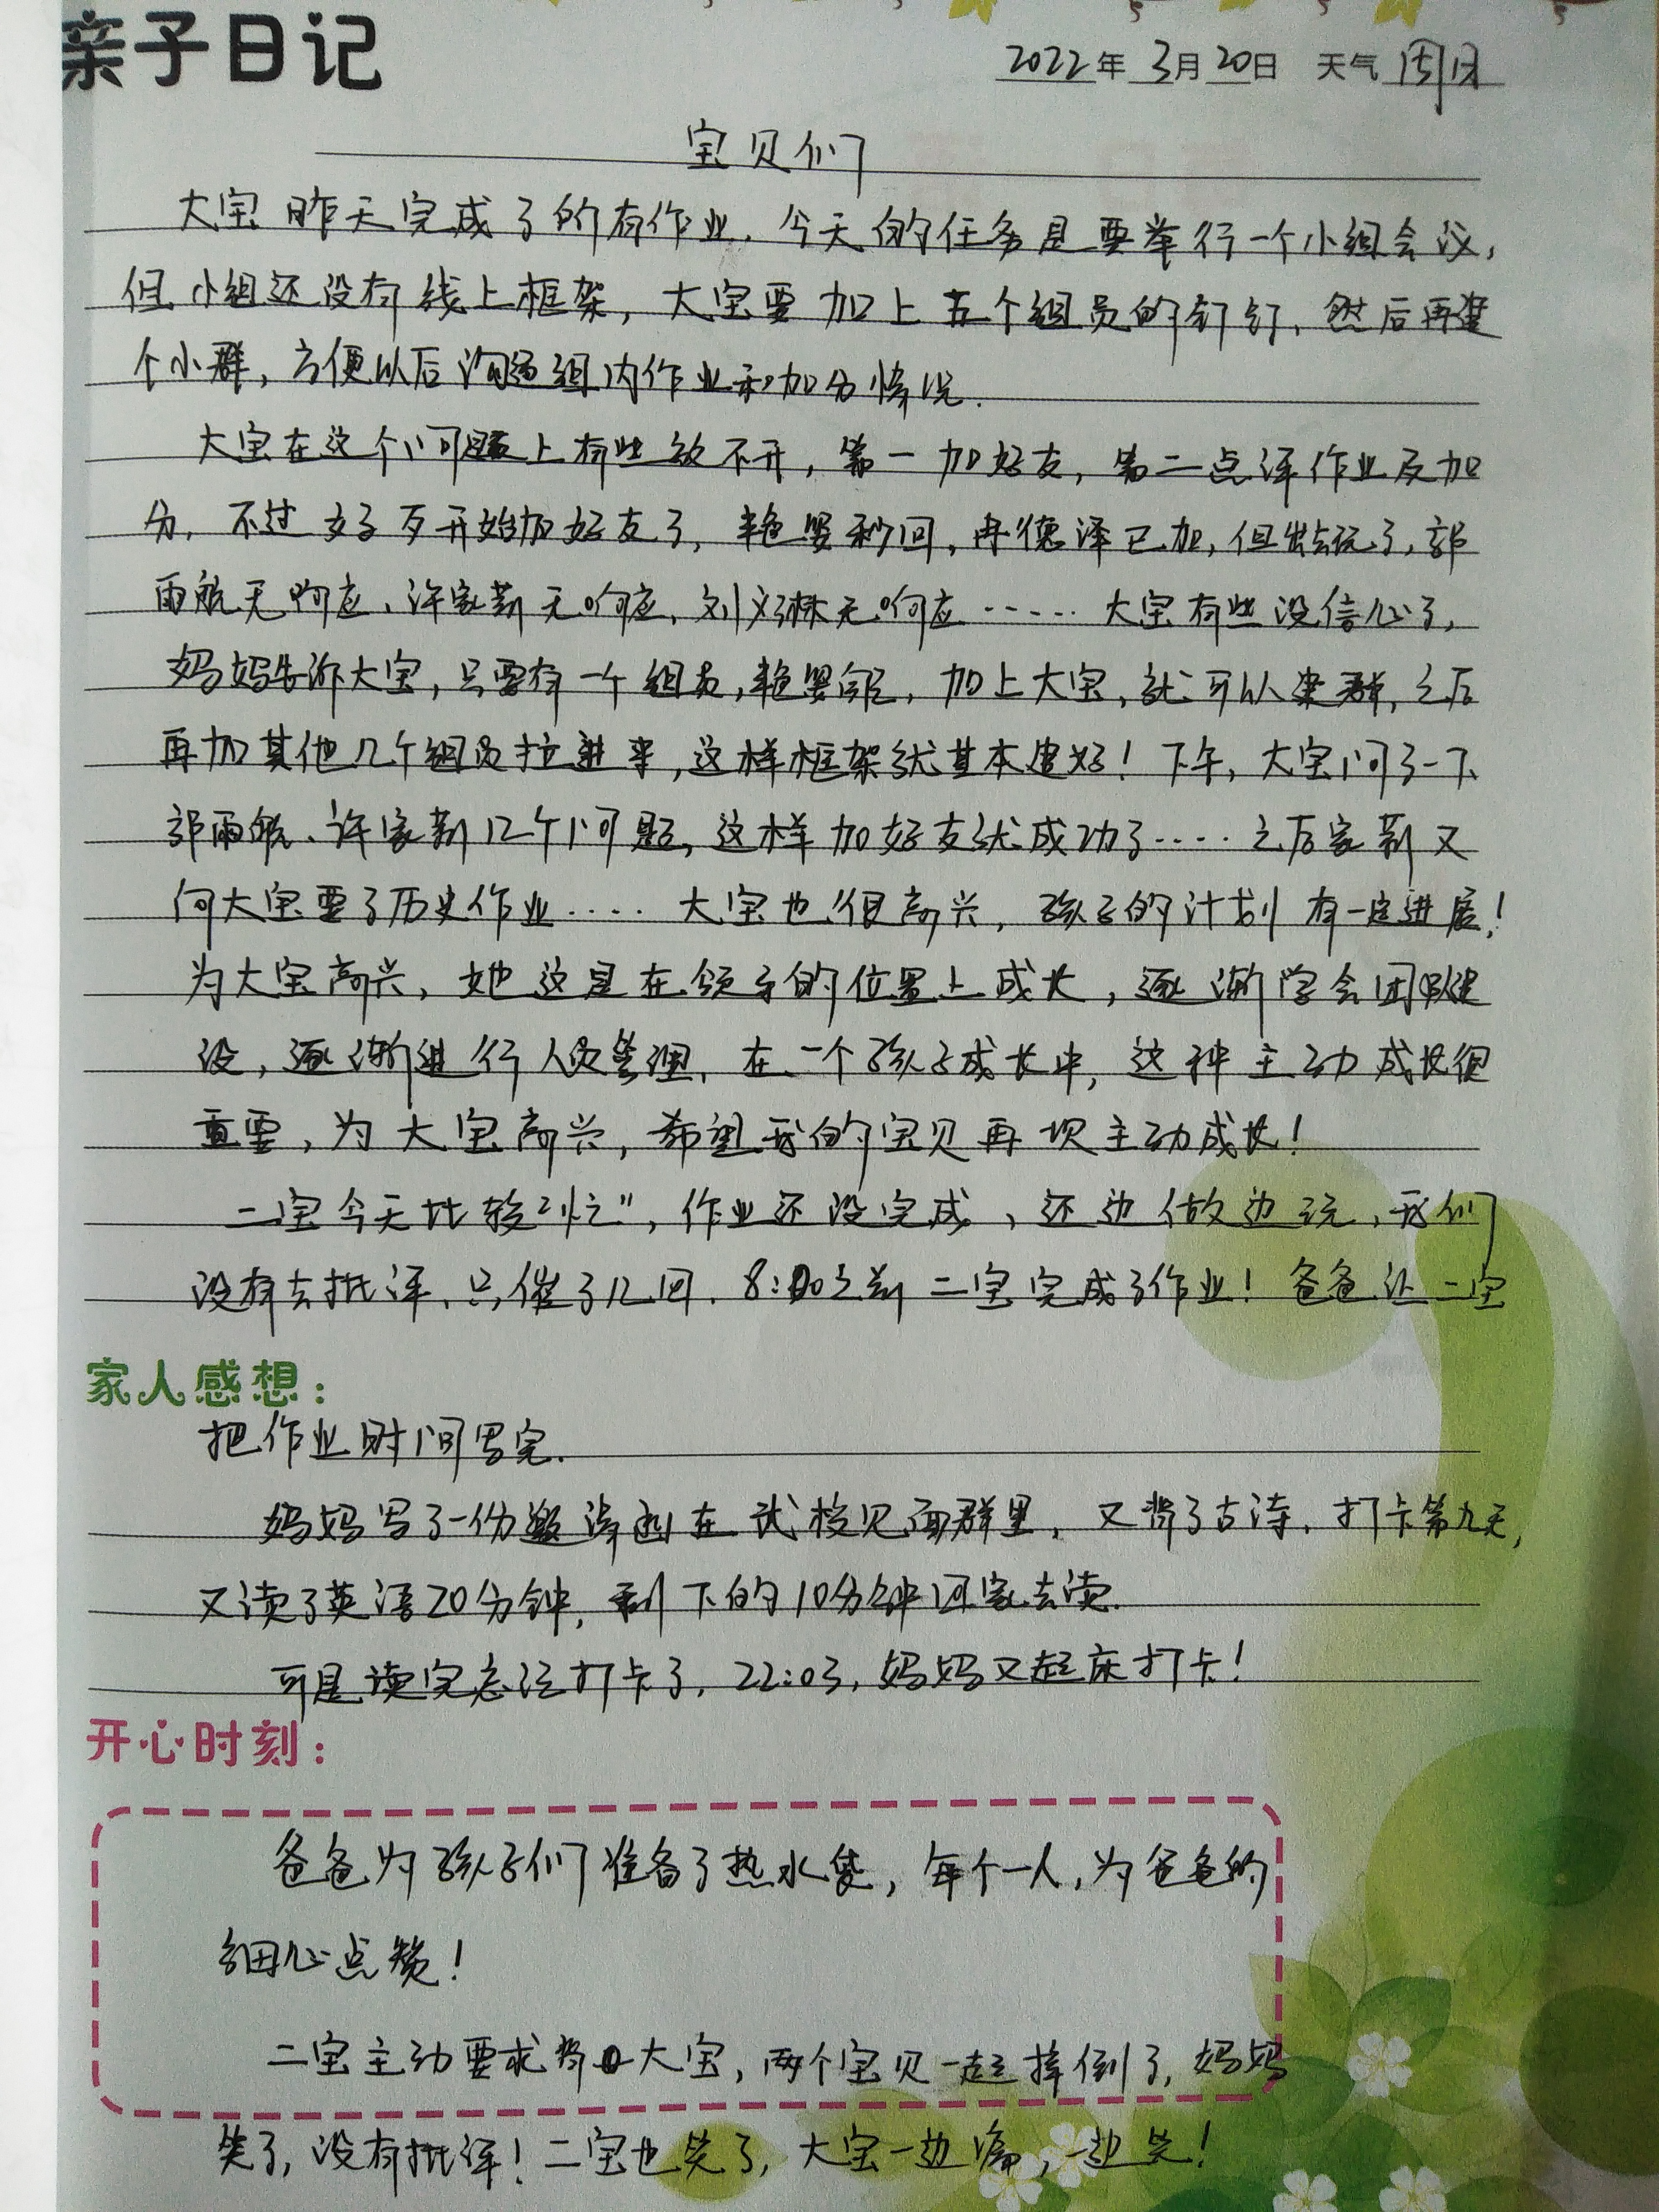 亲子日记
2022年 3月 20日 天气 周日
宝贝们
大宝昨天完成了所有作业，今天的任务是要举行一个小组会议，
但小组还没有线上框架，大宝要加上五个组员的钉钉，然后再建
个小群，方便以后沟通组内作业和加分情况.
大宝在这个问题上有些放不开，第一加好友，第二点评作业及加
分，不过好歹开始加好友了，艳婴秒回，冉德泽已加，但出去玩了，郭
雨航无响应、许家新无响应、刘淋无响应……大宝有些没信心了，
妈妈告诉大宝，只要有一个组员，艳婴，加上大宝，就可以建群，之后
再加其他几个组员拉进来，这样框架就基本建好！下午，大宝问了一下
郭雨航、许家新几个问题，这样加好友就成功了……之后家新又
向大宝要了历史作业……大宝也很高兴，孩子的计划有一定进展！
为大宝高兴，她这是在领导的位置上成长，逐渐学会团队建
设，逐渐进行人员管理，在一个孩子成长中，这种主动成长很
重要，为大宝高兴，希望我的宝贝再次主动成长！
二宝今天比较“忙”，作业还没完成，还边做边玩，我们
没有去批评，只催了几回，8:00之前二宝完成了作业！爸爸让二宝
家人感想：
把作业时间写完.
妈妈写了一份邀请函在武校见面群里，又背了古诗，打卡第九天，
又读了英语20分钟，剩下的10分钟回家去读.
可是读完忘记打卡了，22:03，妈妈又起床打卡！
开心时刻：
爸爸为孩子们准备了热水袋，每个一人，为爸爸的
细心点赞！
二宝主动要求背大宝，两个宝贝一起摔倒了，妈妈
笑了，没有批评！二宝也笑了，大宝一边痛，一边笑！